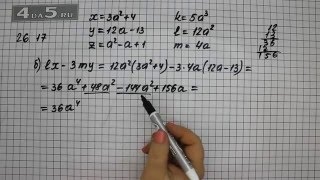 4DA5.RU
26.17
x=3a²+4
y=12a-13
z=a²-a+1
k=5a³
l=12a²
m=4a
13
12
36
156
б) lx-3my=12a²(3a²+4)-3·4a(12a-13)=
=36a⁴+48a²-144a²+156a=
=36a⁴